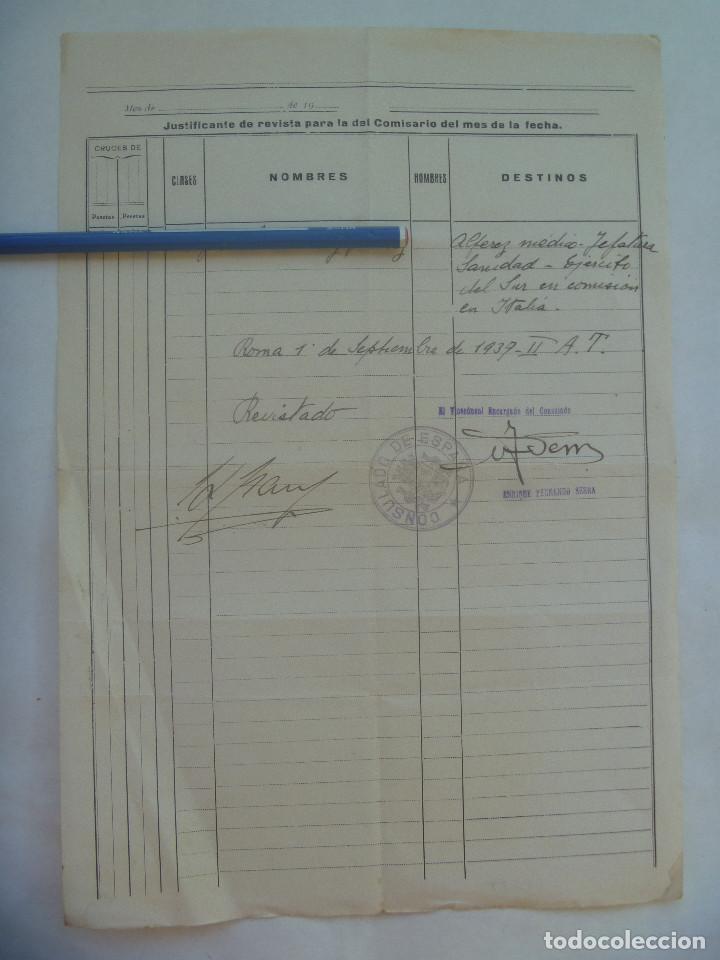 Mes de de 19
Justificante de revista para la del Comisario del mes de la fecha.
CRUCES DE
CLASES
NOMBRES
HOMBRES
DESTINOS
Pesetas Pesetas
Alferez médico - Jefatura
Sanidad - Ejército
del Sur en comisión
en Italia.
Roma 1º de Septiembre de 1937 - II A.T.
Revistado
El Vicecónsul Encargado del Consulado
CONSULADO DE ESPAÑA
ENRIQUE FERNANDO SERRA
todocoleccion.net